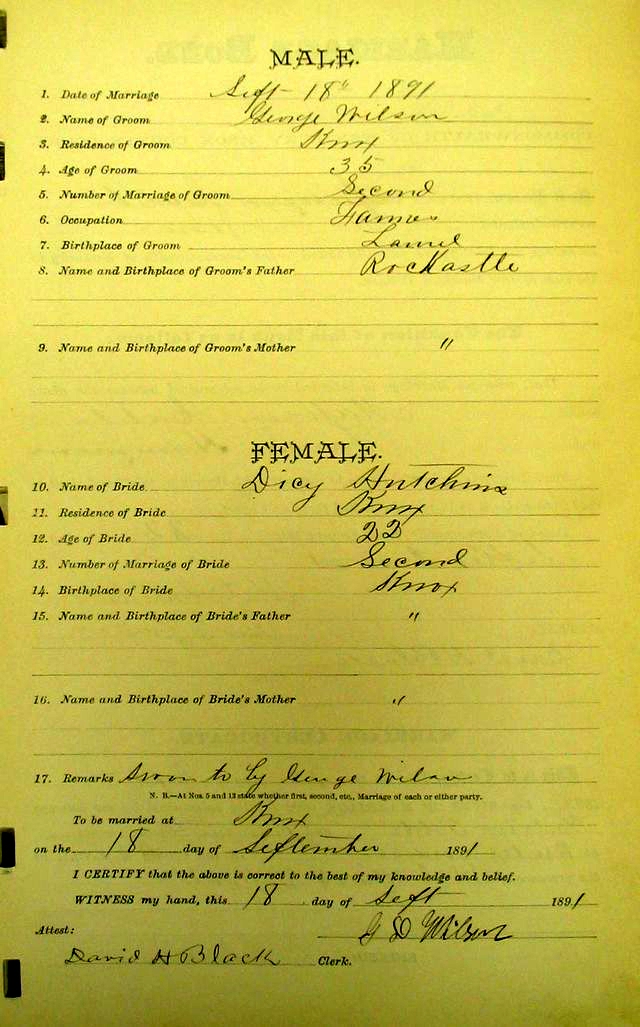 MALE.
1. Date of Marriage Sept 18th 1891
2. Name of Groom George Wilson
3. Residence of Groom Knox
4. Age of Groom 35
5. Number of Marriage of Groom Second
6. Occupation Farmer
7. Birthplace of Groom Laurel
8. Name and Birthplace of Groom's Father Rockastle
9. Name and Birthplace of Groom's Mother "
FEMALE.
10. Name of Bride Dicy Hutchins
11. Residence of Bride Knox
12. Age of Bride 22
13. Number of Marriage of Bride Second
14. Birthplace of Bride Knox
15. Name and Birthplace of Bride's Father "
16. Name and Birthplace of Bride's Mother "
17. Remarks Sworn to by George Wilson
N. B.—At Nos. 5 and 13 state whether first, second, etc., Marriage of each or either party.
To be married at Knox
on the 18 day of September 1891
I CERTIFY that the above is correct to the best of my knowledge and belief.
WITNESS my hand, this 18 day of Sept 1891
Attest: G D Wilson
David H Black Clerk.